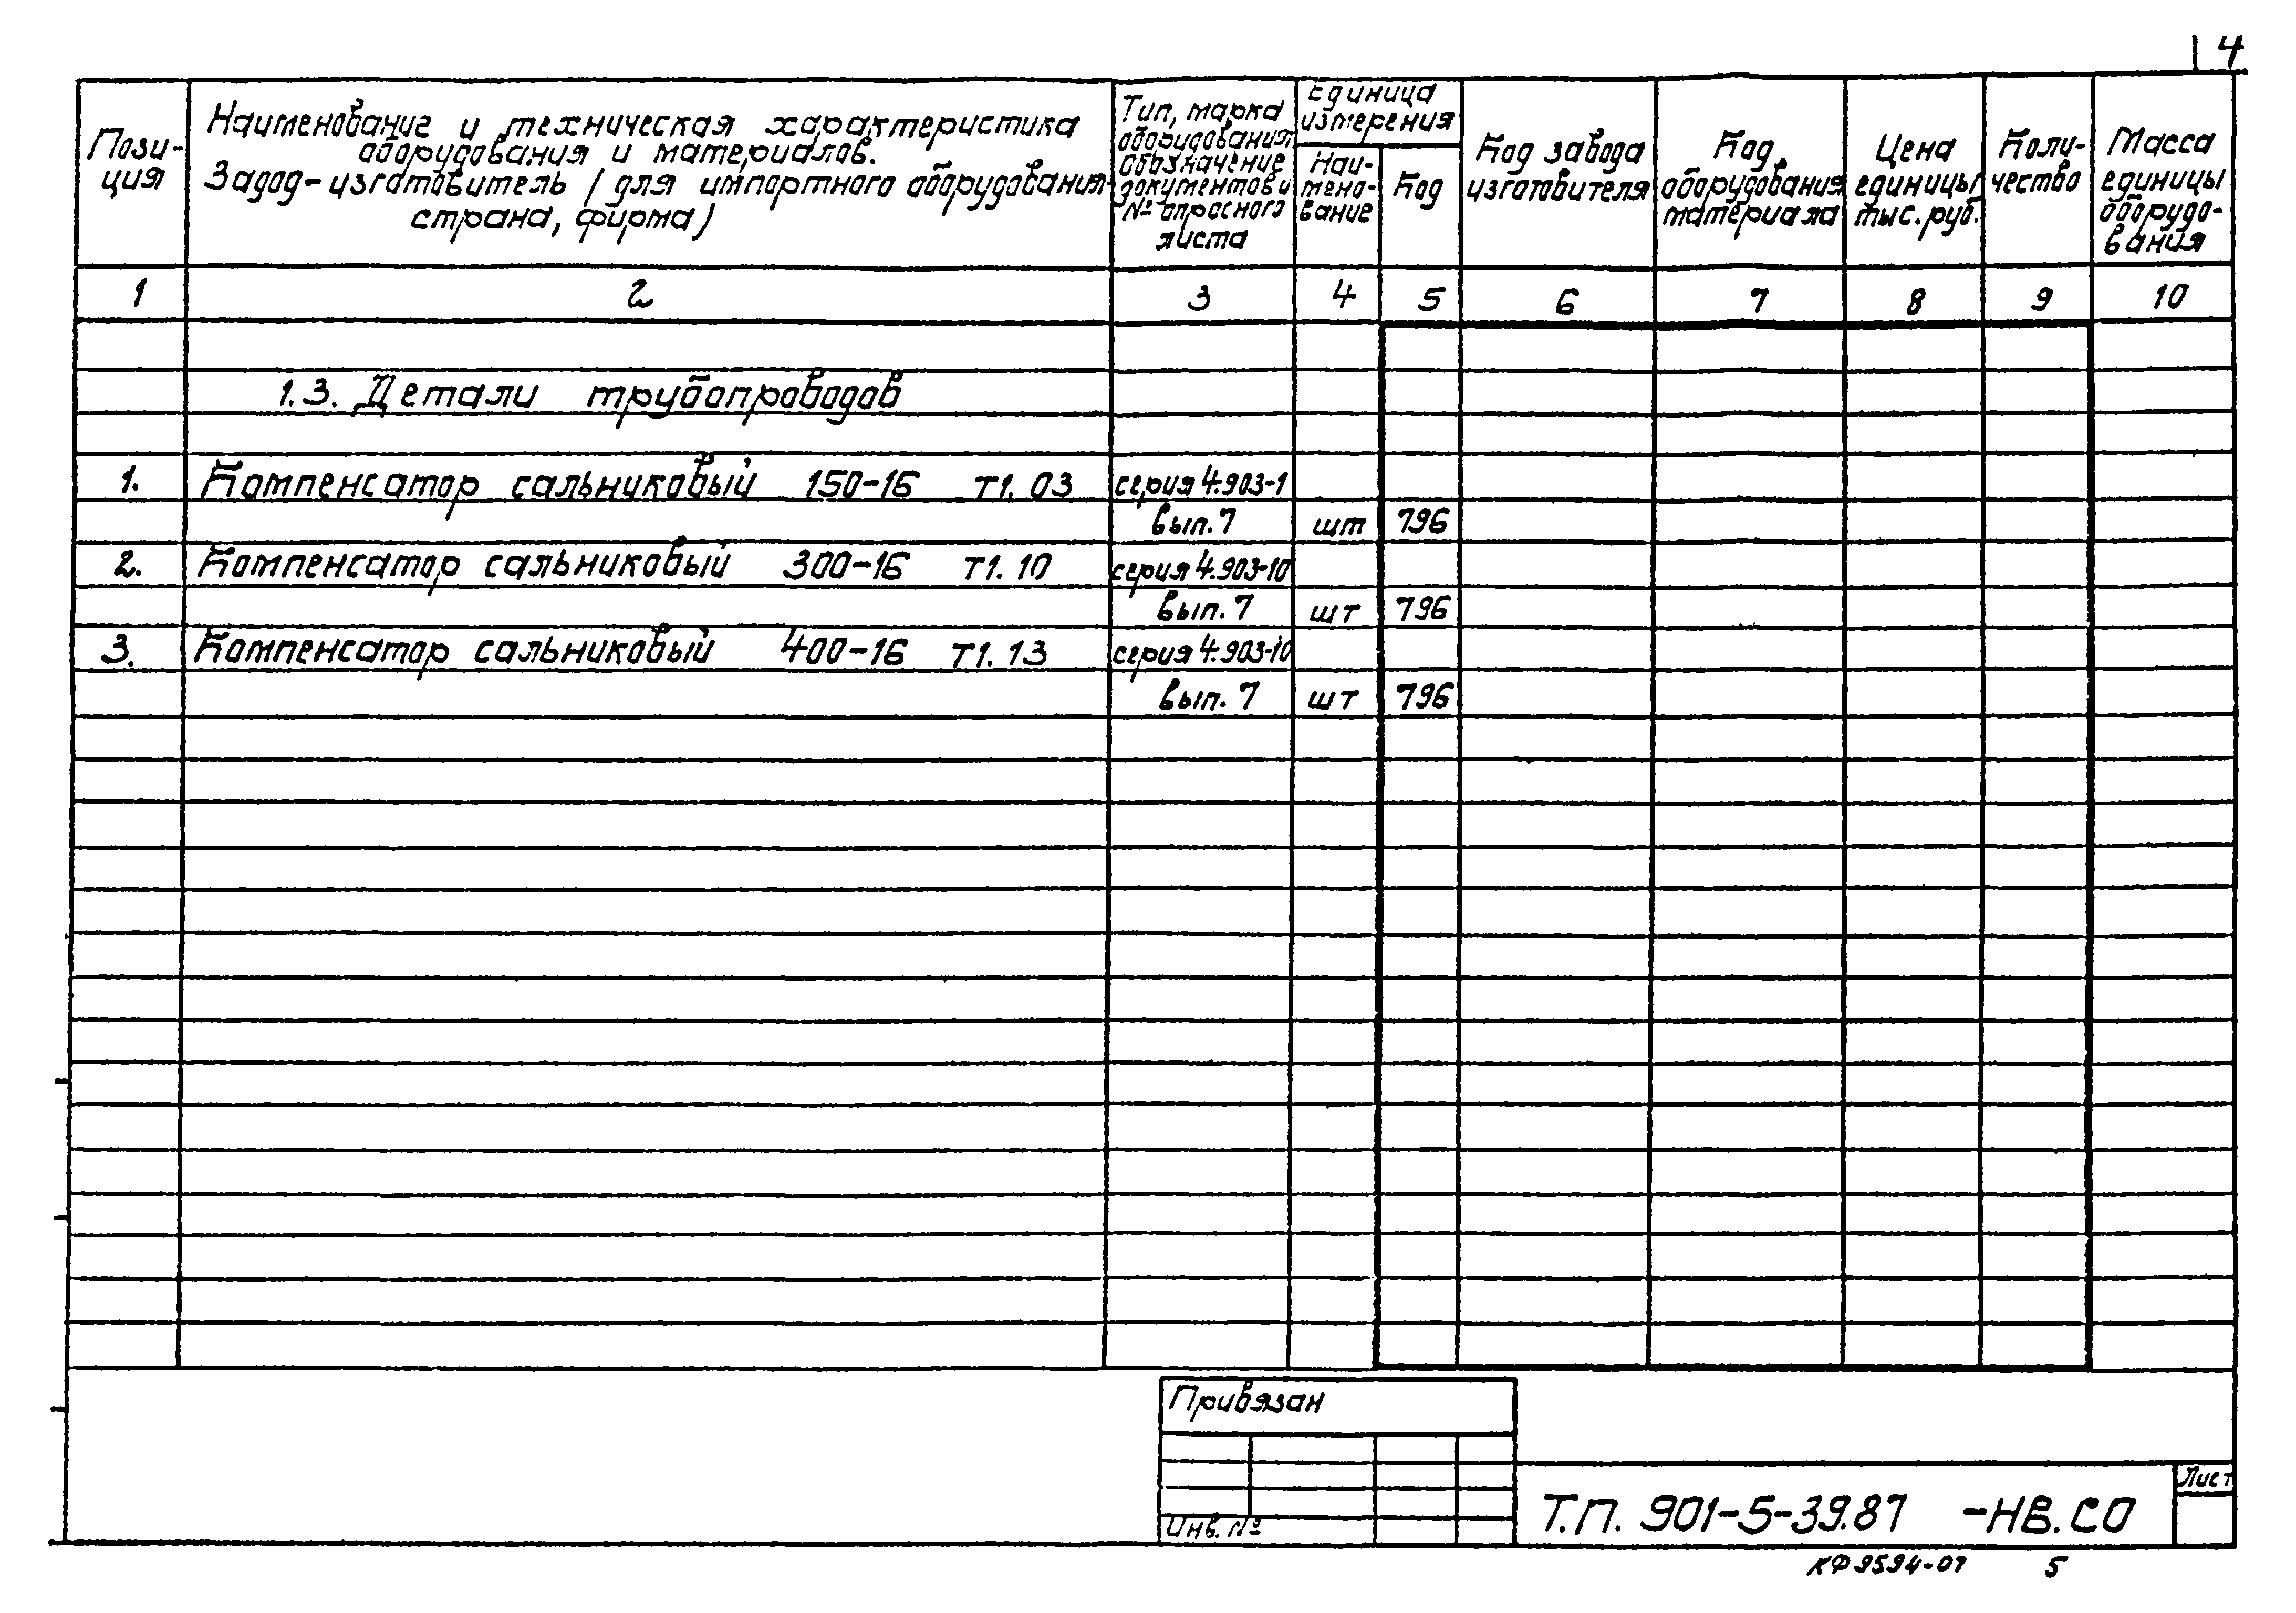 4
Пози-
ция
Наименование и техническая характеристика
оборудования и материалов.
Задод-изготовитель (для импортного оборудования-
страна, фирма)
Тип, марка
оборудования,
обозначение
документов и
№ опросного
листа
Единица
измерения
Наи-
мено-
вание
Код
Код завода
изготовителя
Код
оборудования
материала
Цена
единицы
тыс. руб.
Коли-
чество
Масса
единицы
оборудо-
вания
1 2 3 4 5 6 7 8 9 10
1.3. Детали трубопроводов
1. Компенсатор сальниковый 150-16 Т1.03 серия 4.903-1
вып. 7 шт 796
2. Компенсатор сальниковый 300-16 Т1.10 серия 4.903-10
вып. 7 шт 796
3. Компенсатор сальниковый 400-16 Т1.13 серия 4.903-10
вып. 7 шт 796
Привязан
Инв. №
Т.П. 901-5-39.87 -НВ.СО
Лист
КФ 9594-07 5